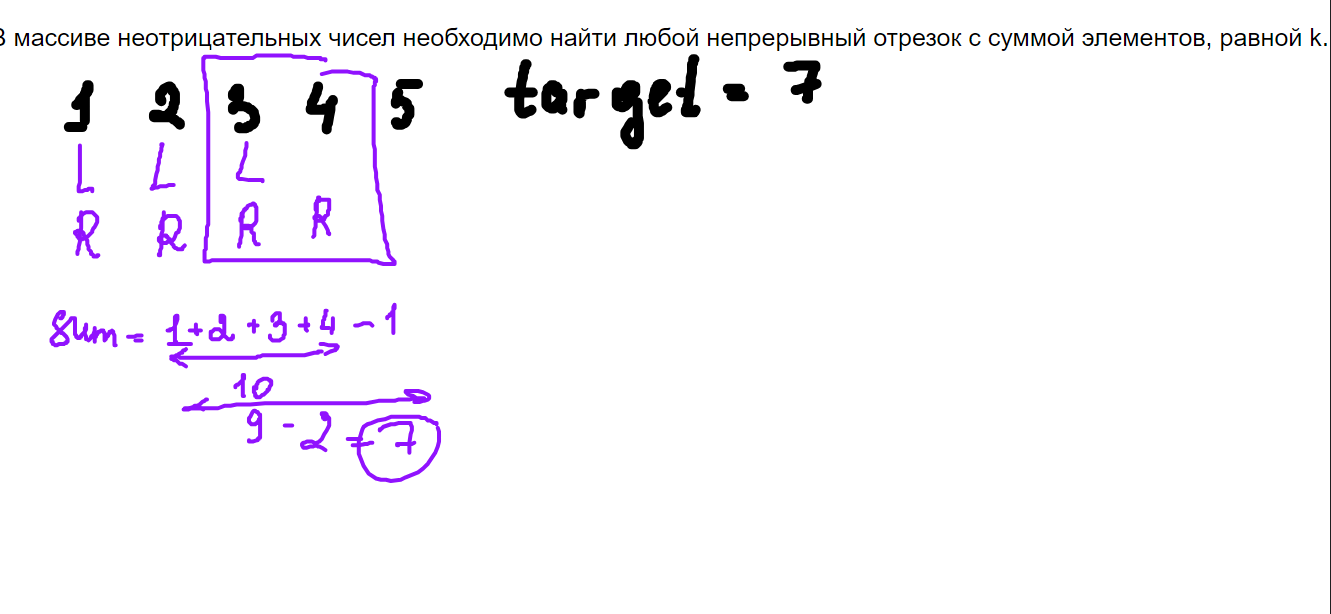 В массиве неотрицательных чисел необходимо найти любой непрерывный отрезок с суммой элементов, равной k.
1 2 3 4 5 target = 7
L L L
R R R R
sum = 1+2+3+4-1
10
9-2=7